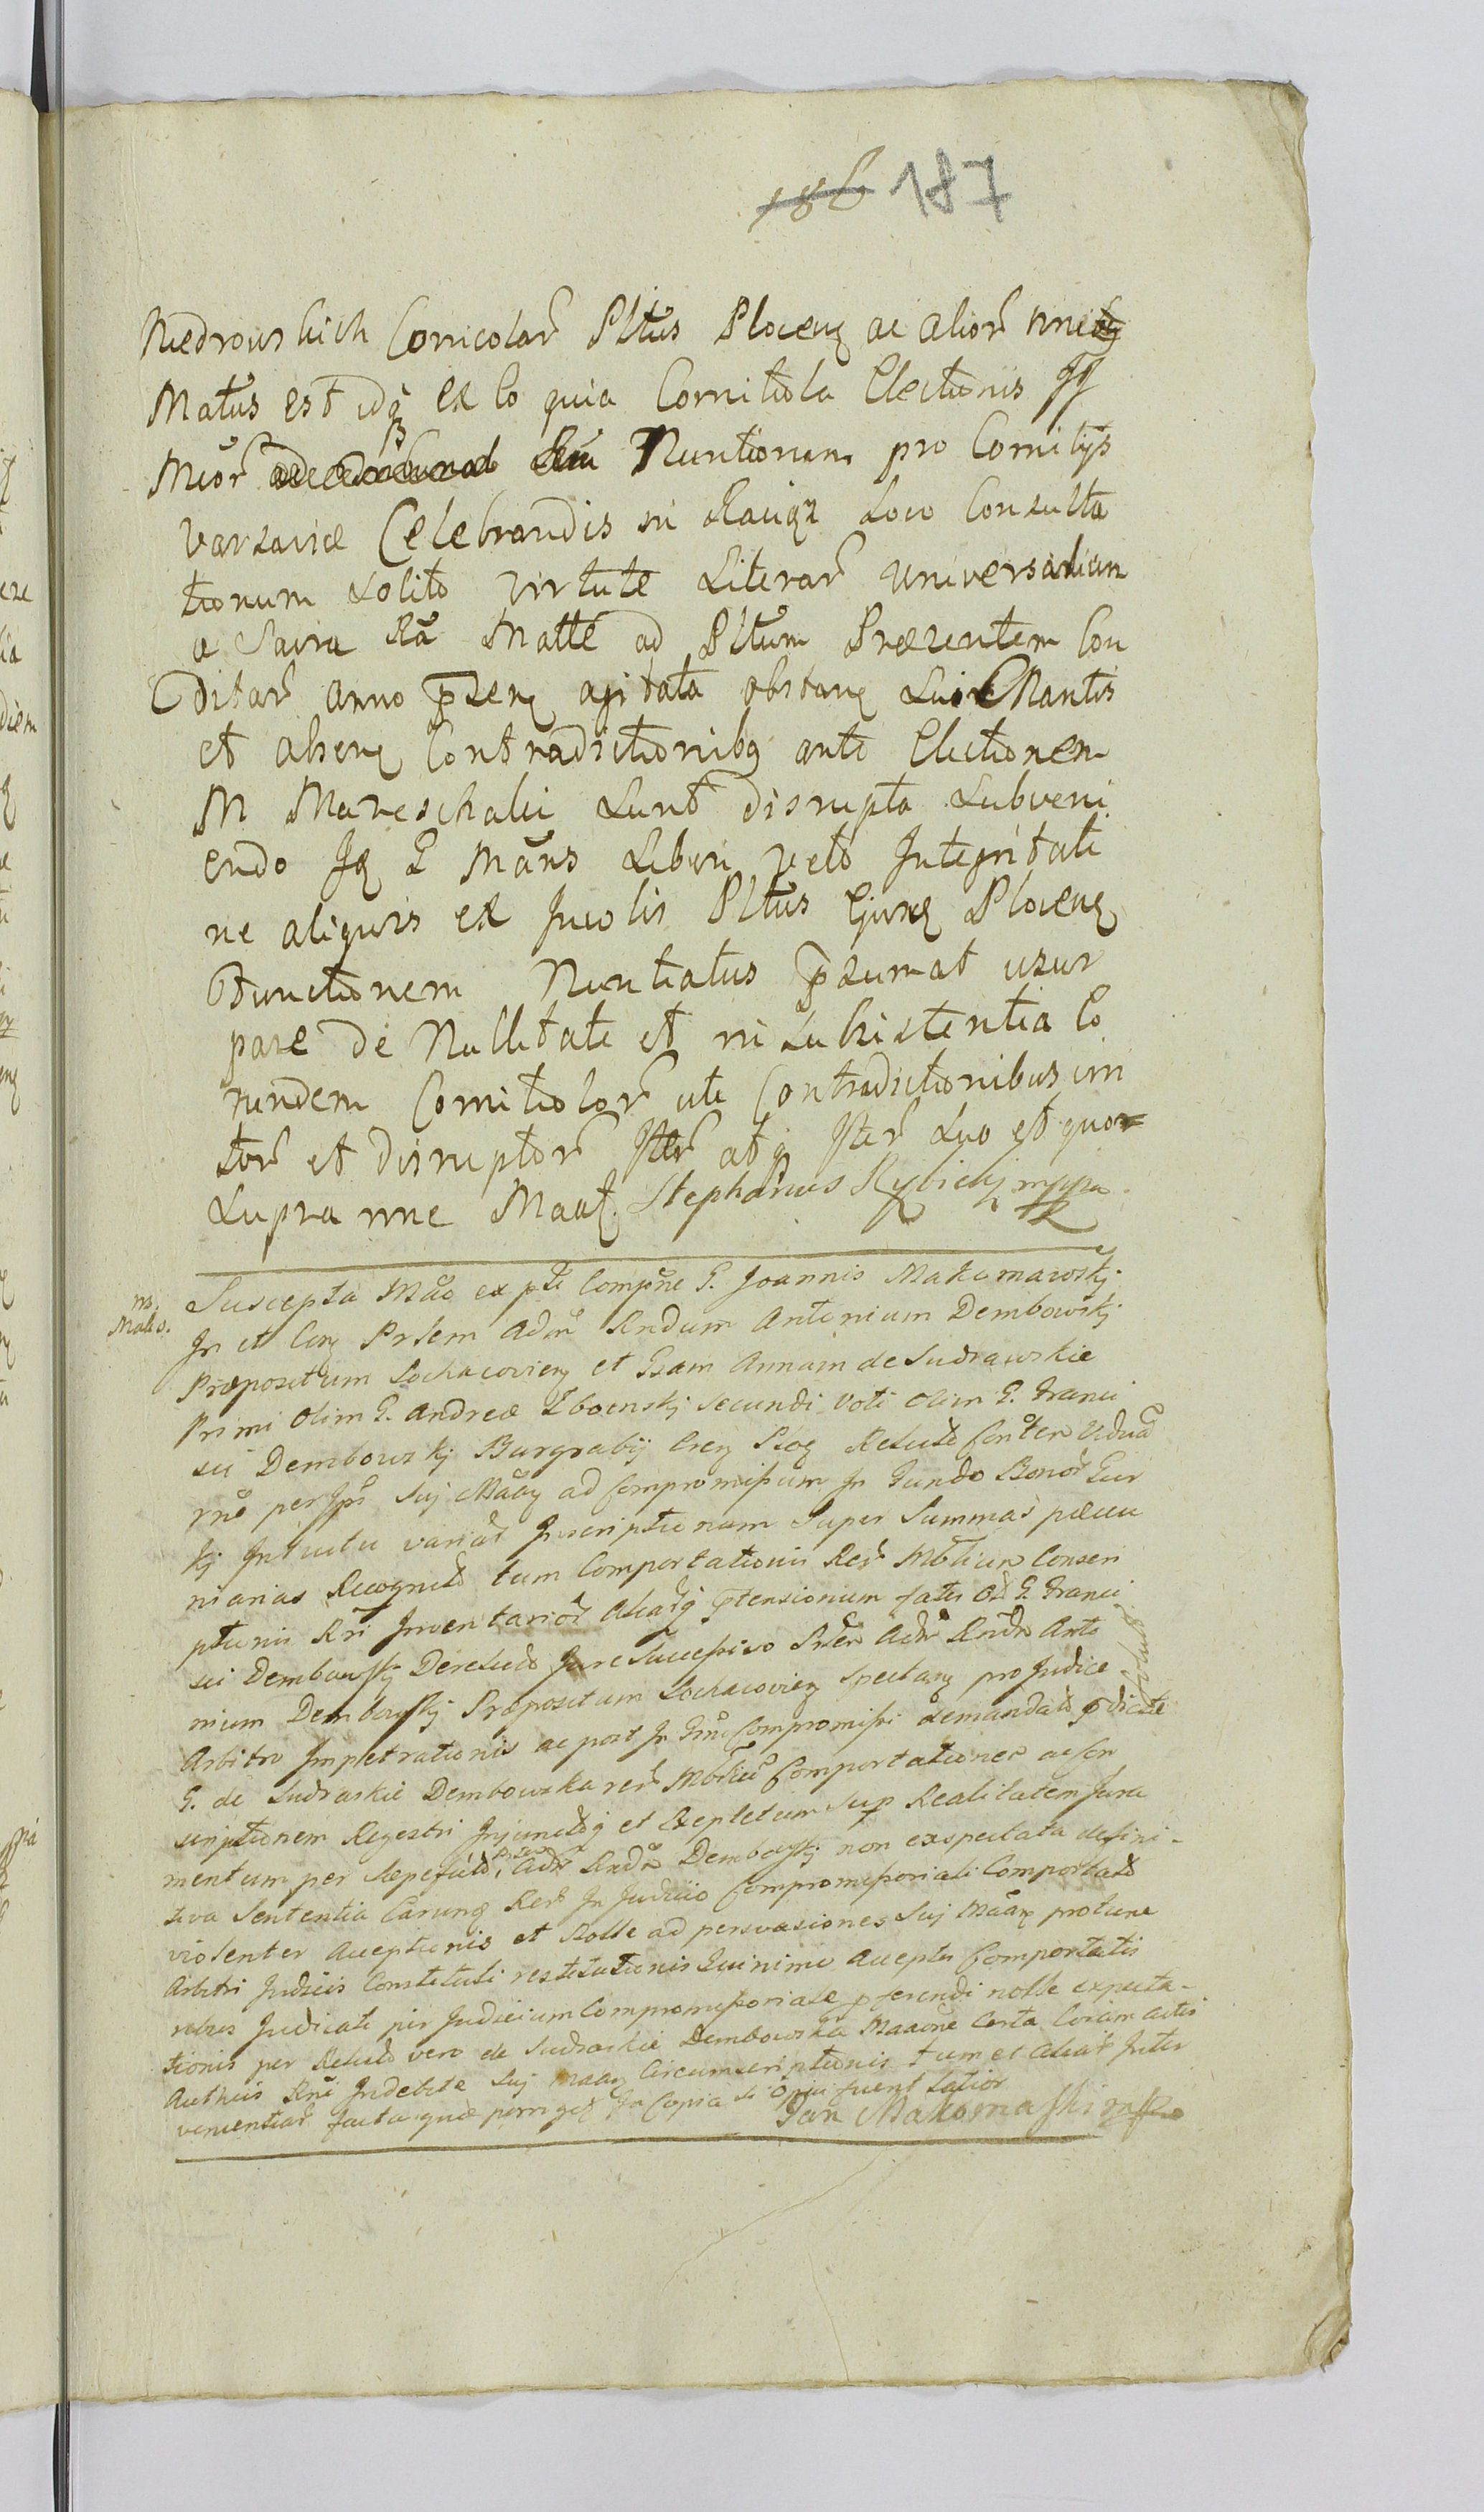 186 187
Niedrowskich Corricolar Pltus Plocens ac alior
Matus est idq ex Eo quia Comitiola Electionis JJ
Mcor Seu Nuntiorum pro Comitys
Varsaviæ Celebrandis in Raciąż Loco Consulta
tionum Solito virtute Literar universalium
a Sacra Ra Matte ad Pltum Præzentem Con
ditar anno pzens agitata obstans Sui Mantis
et absens Contradictionibq ante Electionem
M Mareschalci sunt disrupta Subveni
endo Jq E Mans Liberi veto Integritati
ne aliquis ex Incolis Pltus Ejusq Plocens
Functionem Nuntiatus pzumat uzur
pare de Nullitate et in Subzistentia Eo
rundem Comitiolor uti Contradictionibus
tor et disruptor Jter atq Jter Suo et quor
Supra nne Maat. Stephanus Rybicky mppa
ns.
Mako.
Suscepta Mão ex pte Compne G. Joannis Makomawskj
In et Con Prlem Adm Rndum Antonium Dembowskj
Præpositum Lochacoviens et Gsam Annam de Sudrawskie
Primi olim G. Andreæ Zboenskj secundi voti olim G. Franci
sci Dembowskj Burgrabij Cren Ploc Relict Conter Vidua
rne per Jps suj Maan ad Compromissum In Fundo Bonor Gur
kj Intuitu variar Inscriptionum Super Summas pæcu
niarias Recognit tum Comportationis Rer Mbilium Conscri
ptionis Rri Inventarior Aliarq ptensionum fatis Od G. Franci
sci Dembowskj Derelict Jure Successivo Prlem Adm Rndm Anto
nium Dembowskj Præpositum Lochacoviens spectans pro Judice
Arbitro Impetrationis ac post In Gmo Compromissi demandat pdictæ
G. de Sudraskie Dembowska rer Mbilium Comportationes ac Con
scriptionem Regestri Injunctq et Expletum sup Realitatem Jura
mentum per Sæpefat Prlem Adm Rndm Dembowskj non expectata defini-
tiva Sententia Earunq Rer In Judicio Compromissoriali Comportat
violenter Acceptionis et Nolle ad persvasiones suj Maans protunc
Arbitri Judicis Constituti restitutionis Quinimo Acceptis Comportatis
rebus Judicati per Judicium Compromissoriale pferendi nolle expecta-
tionis per Relict vero de Sudraskie Dembowska Maaone Certa Coram actis
Authcis Rni Indebite suj Maan Circumscriptionis tum et Aliar Inter
venientiar facta quæ porriget In Copia si Opus fuerit Latior
Jan Makomaski mppa